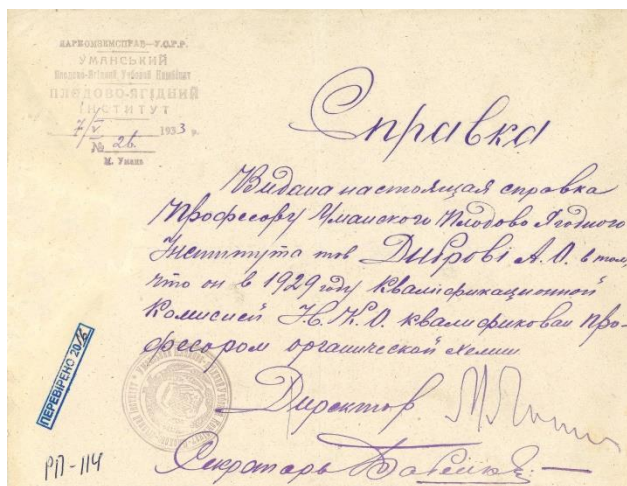 НАРКОМЗЕМСПРАВ—У.С.Р.Р.
УМАНСЬКИЙ
Плодово-Ягідний Учбовий Комбінат
ПЛОДОВО-ЯГІДНИЙ
ІНСТИТУТ
7/V 1933 р.
№ 26
М. Умань
Справка
Видана настоящая справка
Професору Уманского Плодово Ягодного
Института тов А. О. в том,
что он в 1929 году Квалификационной
Комисией Н.К.О. квалификован Про-
фесором органической химии.
Директор
Секретарь
ПЕРЕВІРЕНО 2016
РП-114